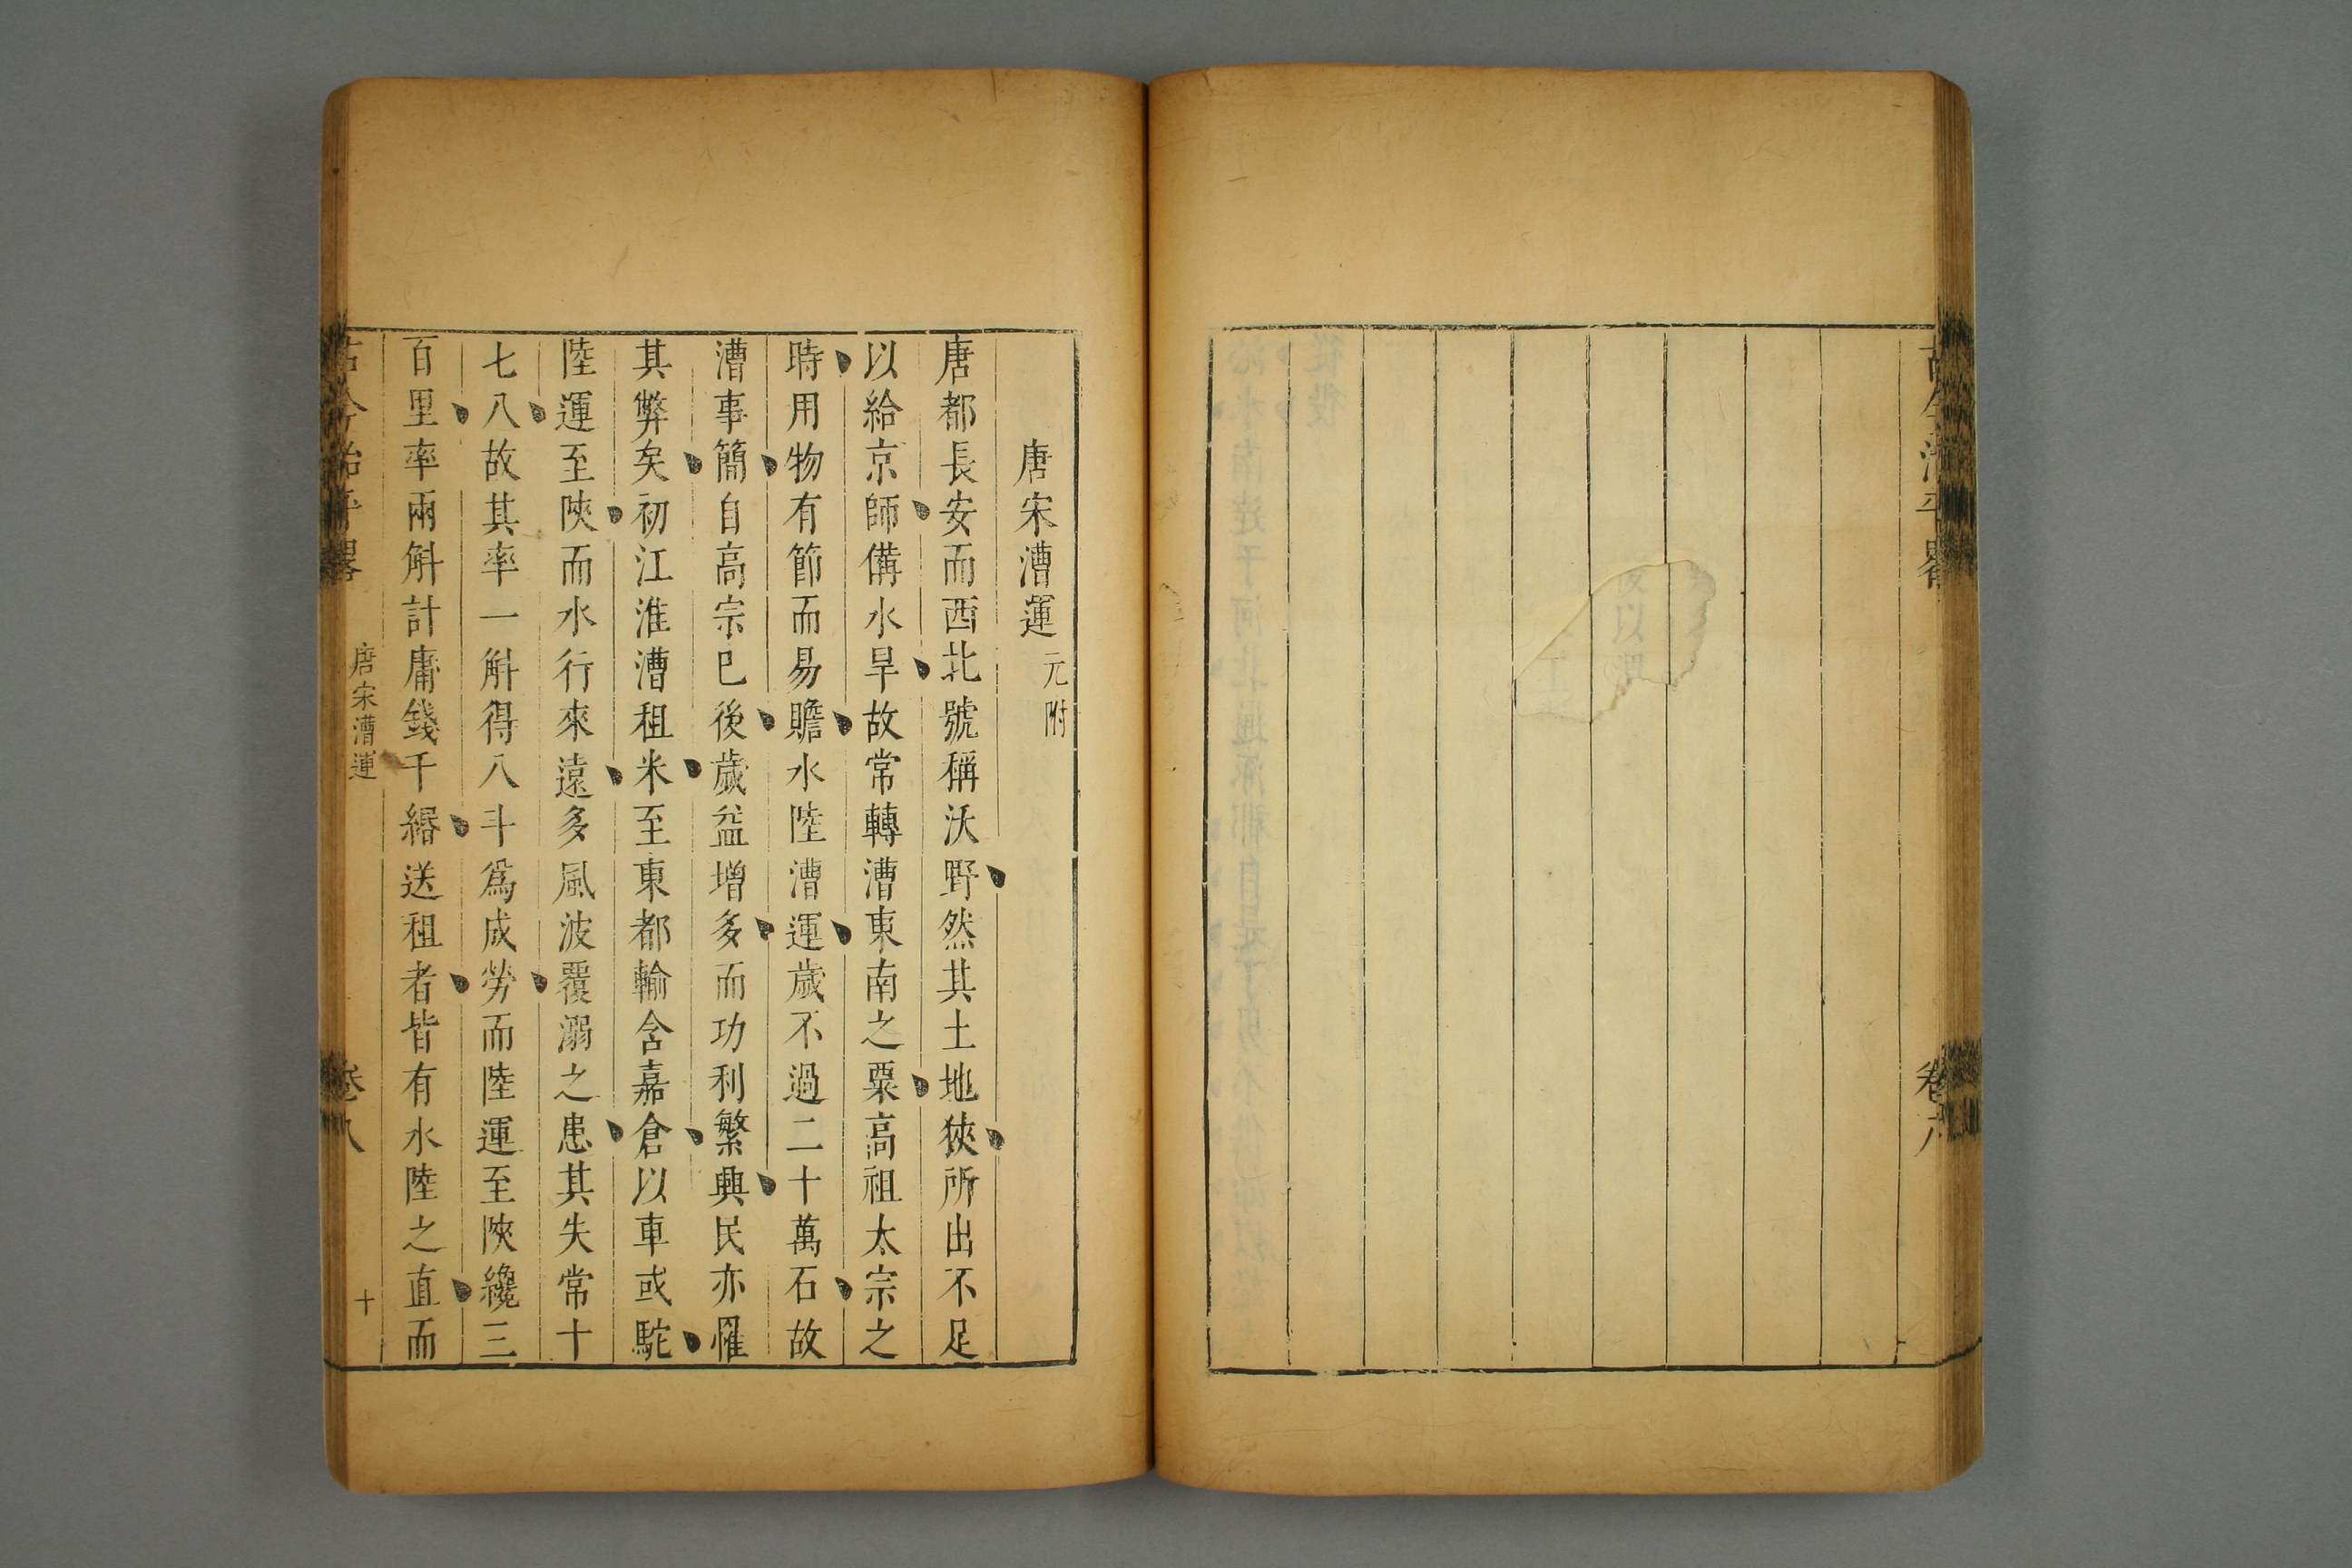 古今治平畧
卷八
唐宋漕運 元附
唐都長安而西北號稱沃野然其土地狹所出不足
以給京師備水旱故常轉漕東南之粟高祖太宗之
時用物有節而易贍水陸漕運歲不過二十萬石故
漕事簡自高宗已後歲益增多而功利繁興民亦罹
其弊矣初江淮漕租米至東都輸含嘉倉以車或駝
陸運至陝而水行來遠多風波覆溺之患其失常十
七八故其率一斛得八斗爲成勞而陸運至陝纔三
百里率兩斛計庸錢千緡送租者皆有水陸之直而
古今治平畧
唐宋漕運
卷八
十